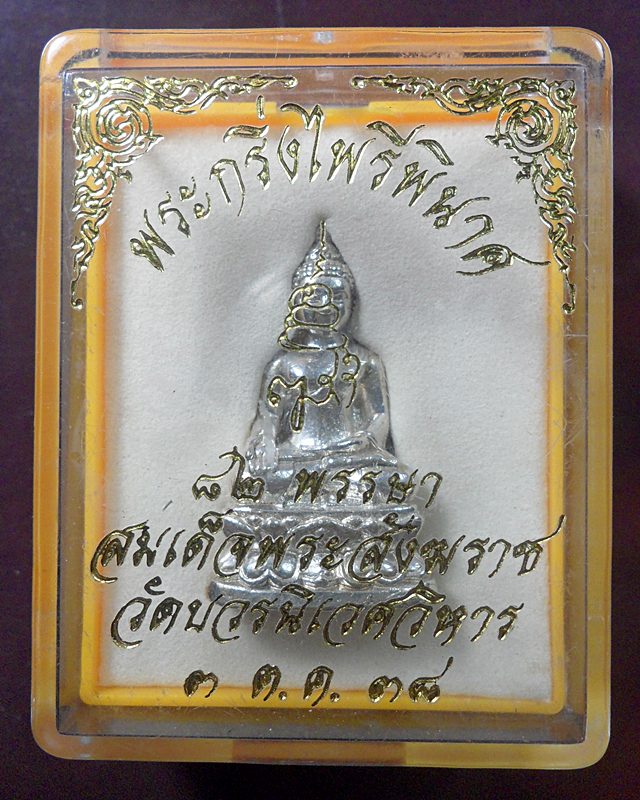 พระกริ่งไพรีพินาศ
๘๒ พรรษา
สมเด็จพระสังฆราช
วัดบวรนิเวศวิหาร
๓ ต.ค. ๓๘